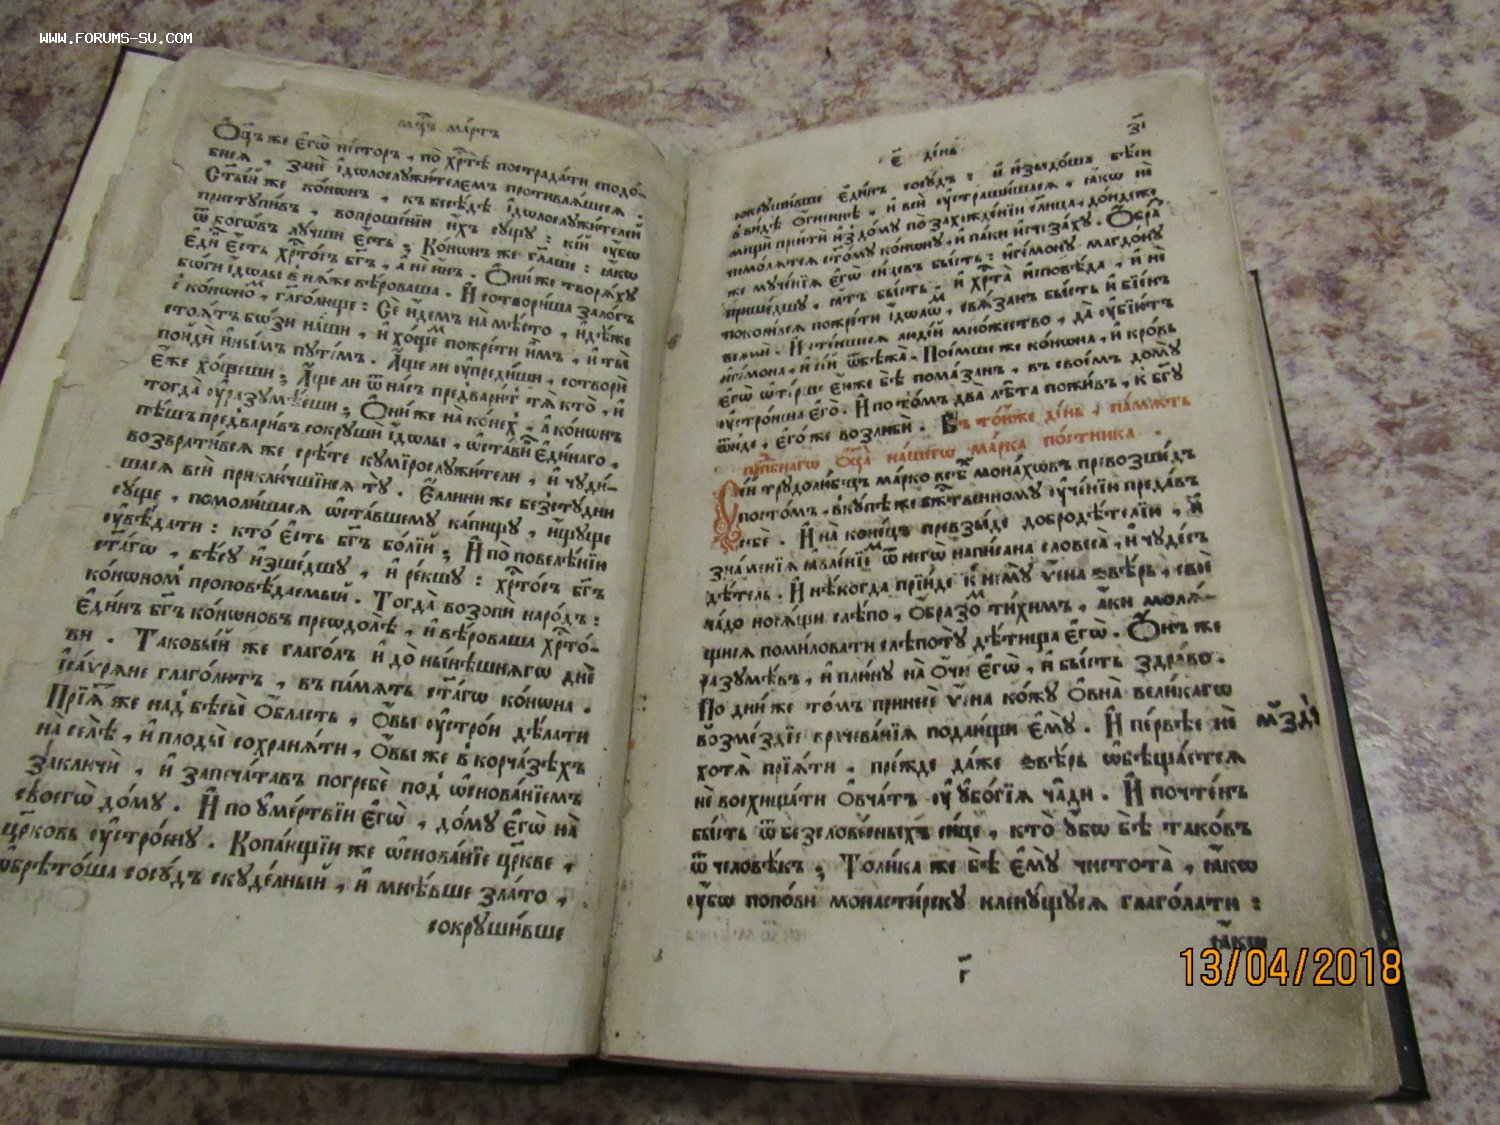 WWW.FORUMS-SU.COM
мц҃ъ ма́ртъ
Ѻц҃ъ же є҆гѡ̀ не́сторъ , по хрⷭ҇тѣ̀ пострада́ти сподо́-
бисѧ , занѐ і҆долослꙋжи́телемъ противлѧ́шесѧ .
Ст҃ы́й же ко́нѡнъ , къ бесѣ́дѣ і҆долослꙋжи́телей
пристꙋпи́въ , вопроше́нїи и҆́хъ сꙋ́щꙋ : кі́й ᲂу҆́бѡ
ѿ богѡ́въ лꙋ́чши є҆́сть ; Ко́нѡнъ же гл҃аше : ꙗ҆́кѡ
є҆ди́нъ є҆́сть хрⷭ҇то́съ бг҃ъ , а҆ не и҆́нъ . Ѻни́ же творѧ́хꙋ
бѡ́ги і҆́дѡлы в нѧ́же вѣ́роваша . И҆ сотвори́ша зало́гъ
с ко́нѡномъ , глаго́люще : Сѐ и҆́демъ на мѣ́сто , и҆дѣ́же
стоѧ́тъ бѡ́зи на́ши , и҆ хо́щемъ пожре́ти и҆̀мъ , и҆ ты̀
пойдѝ и҆ны́мъ пꙋте́мъ . А҆́ще ли ᲂу҆преди́ши , сотворѝ
є҆́же хо́щеши ; А҆́ще ли ѿ на́съ предвари́тъ тѧ̀ кто̀ , и҆
тогда̀ ᲂу҆разꙋмѣ́еши ; Ѻни́ же на ко́нехъ , а҆ ко́нѡнъ
пѣ́шъ предвари́въ сокрꙋшѝ і҆́дѡлы , ѡ҆ста́вй є҆ди́наго ,
возврати́всѧ же срѣ́те кꙋмїрослꙋжи́тели , и҆ чꙋди́-
шасѧ всѝ приклю́чшїисѧ тꙋ̀ . Є҆́ллини же безстꙋ́дни
сꙋ́ще , помоли́шасѧ ѡ҆ста́вшемꙋ ка́пищꙋ , и҆́щꙋще
ᲂу҆вѣ́дати : кто̀ є҆́сть бг҃ъ бо́лїй ; И҆ по повелѣ́нїю
ст҃а́гѡ , бѣ́сꙋ и҆зше́дшꙋ , и҆ ре́кшꙋ : хрⷭ҇то́съ бг҃ъ
ко́нѡномъ проповѣ́даемый . Тогда̀ возопѝ наро́дъ :
є҆ди́нъ бг҃ъ ко́нѡновъ преѡдолѣ̀ , и҆ вѣ́роваша хрⷭ҇то́-
ви . Таковы́й же глаго́лъ и҆ до ны́нѣшнѧгѡ днѐ
і҆саѵ́рѧне глаго́лютъ , въ па́мѧть ст҃а́гѡ ко́нѡна .
Прїѧ́тъ же над бѣ́сы ѻ҆́бласть , ѻ҆́вы ᲂу҆стро́и дѣ́лати
на селѣ̀ , и҆ плоды̀ сохранѧ́ти , ѻ҆́вы же в корча́зѣхъ
заключѝ , и҆ запеча́тавъ погребѐ под ѡ҆снова́нїемъ
своегѡ̀ до́мꙋ . И҆ по ᲂу҆ме́ртвїи є҆гѡ̀ , до́мꙋ є҆гѡ̀ на
цр҃ковь ᲂу҆стро́енꙋ . Копа́ющїи же ѡ҆снова́нїе цр҃кве ,
ѡ҆брѣто́ша сосꙋ́дъ скꙋде́лный , и҆ мнѣ́вше зла́то ,
сокрꙋши́вше
з҃і
є҃ де́нь
сокрꙋши́вше є҆ди́нъ сосꙋ́дъ : и҆ и҆зыдо́шѧ бѣ́си
в ви́дѣ ѻ҆́гненнѣ , и҆ всѝ ᲂу҆страши́шасѧ , ꙗ҆́кѡ не
мощѝ прїитѝ и҆з до́мꙋ по захожде́нїи сл҃нца , до́ндеже
помолѧ́тсѧ ст҃о́мꙋ ко́нѡнꙋ , и҆ па́ки и҆счеза́хꙋ . Ѻбра́зъ
же мꙋче́нїѧ є҆гѡ̀ си́цевъ бы́сть : и҆ге́монꙋ магдо́нꙋ
прише́дшꙋ , ꙗ҆́тъ бы́сть , и҆ хрⷭ҇та̀ и҆сповѣ́да , и҆ не
покори́сѧ пожре́ти і҆́дѡлѡмъ , свѧ́занъ бы́сть и҆ бїе́нъ
ве́лми . И҆ сте́кшесѧ люде́й мно́жество , да ᲂу҆бїю́тъ
и҆ге́мона , и҆ се́й ѿбѣжа̀ . Пое́мше же ко́нѡна , и҆ кро́вь
є҆гѡ̀ ѡ҆тє́рше є҆́юже бѣ̀ пома́занъ , въ своемъ домꙋ̀
ᲂу҆стро́иша є҆го̀ . И҆ пото́мъ два лѣ̑та пожи́въ , к бг҃ꙋ
ѿи́де , є҆го́же возлюбѝ . Въ то́йже де́нь , па́мѧть
прⷣбнагѡ ѻ҆ц҃а̀ на́шегѡ ма́рка по́стника .
Се́й трꙋдолю́бецъ ма́рко все́хъ мона́хѡвъ превозше́дъ
посто́мъ , вкꙋ́пѣ же бж҃твенномꙋ ᲂу҆че́нїю преда́въ
себѐ . И҆ на коне́цъ превзы́де доброде́телїю , и҆
зна́менїѧ ꙗ҆вле́нїемъ ѿ негѡ̀ напи́сана словеса̀ , и҆ чꙋде́съ
дѣ́тель . И҆ нѣ́когда прїи́де к немꙋ̀ ѵ҆е́на ѕвѣ́рь , своѐ
ча́до носѧ́щи слѣ́по , ѻ҆́бразомъ ти́химъ , а҆́ки молѧ́-
щисѧ поми́ловати слѣпотꙋ̀ дѣ́тища є҆гѡ̀ . Ѻнъ же
разꙋмѣ́въ , и҆ плю́нꙋ на ѻ҆́чи є҆гѡ̀ , и҆ бы́сть здра́во .
По дни́ же то́мъ принесѐ ѵ҆е́на ко́жꙋ ѻ҆вна̀ вели́кагѡ
возме́здїе врачева́нїѧ подаю́щи є҆мꙋ̀ . И҆ пе́рвѣе не
мъздꙋ̀
хотѧ̀ прїѧ́ти , пре́жде да́же ѕвѣ́рь ѡ҆бѣща́етсѧ
не восхища́ти ѻ҆вча́тъ ᲂу҆ ᲂу҆бо́гїѧ ча́ди . И҆ почте́нъ
бы́сть ѿ безслове́сныхъ си́це , кто̀ ᲂу҆́бѡ бѣ̀ тако́въ
ѿ человѣ́къ ; Толи́ка же бѣ̀ є҆мꙋ̀ чистота̀ , ꙗ҆́кѡ
ᲂу҆́бѡ попо́ви монасти́рскꙋ кленꙋ́щꙋсѧ глаго́лати :
ꙗ҆́кѡ
г҃
13/04/2018